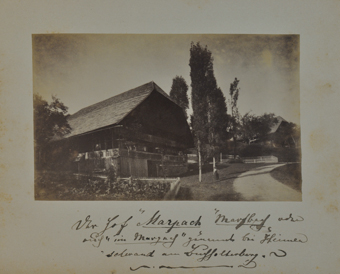 Der Hof "Marpach" "Marzbach" oder
auch "im Marpach" genannt bei Heimen
schwand am Buchholterberg.